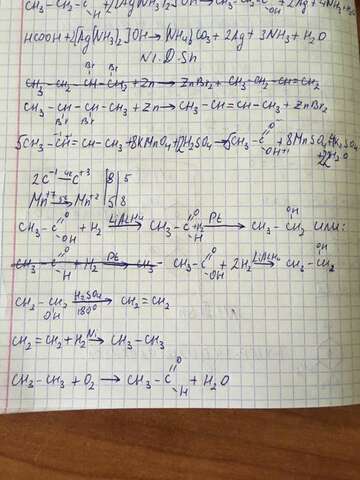 CH₃-CH₂-C(=O)-H + 2[Ag(NH₃)₂]OH → CH₃-CH₂-C + 2Ag + 4NH₃ +
HCOOH + 2[Ag(NH₃)₂]OH → (NH₄)₂CO₃ + 2Ag + 3NH₃ + H₂O
Ni.D.Sn
Br Br
CH₃-CH₂-CH-CH₂ + Zn → ZnBr₂ + CH₃-CH₂-CH=CH₂
CH₃-CH₂-CH-CH-CH₃ + Zn → CH₃-CH=CH-CH₃ + ZnBr₂
Br Br
5CH₃-CH=CH-CH₃ + 8KMnO₄ + 12H₂SO₄ → CH₃-C(=O)-OH + 8MnSO₄ + K₂SO₄
+ H₂O
2C⁻¹ → C⁺³ | 8 | 5
Mn⁺⁷ → Mn⁺² | 5 | 8
CH₃-C(=O)-OH + H₂ → LiAlH₄ CH₃-C(=O)-H → Pt CH₃-CH₂-OH или:
CH₃-C(=O)-H + H₂ → Pt CH₃- CH₃-C(=O)-OH + 2H₂ → LiAlH₄ CH₃-CH₂-OH
CH₃-CH₂-OH → H₂SO₄ 180° CH₂=CH₂
CH₂=CH₂ + H₂ → Ni CH₃-CH₃
CH₃-CH₃ + O₂ → CH₃-C(=O)-H + H₂O